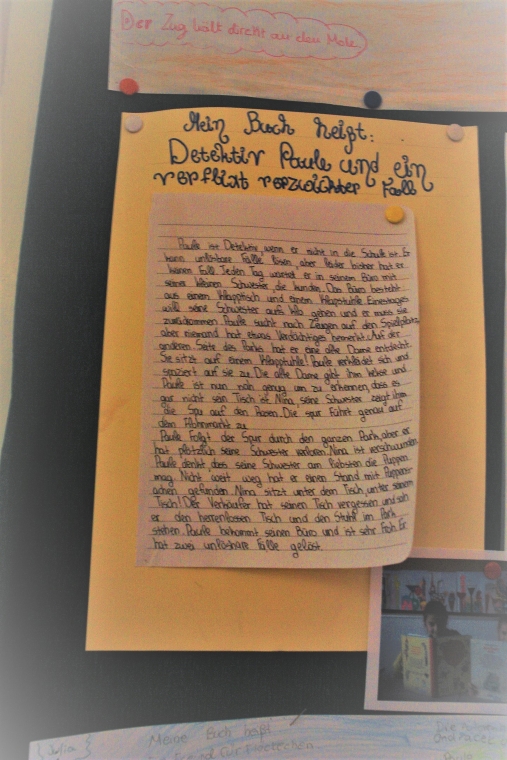 Der Zug hält direkt an der Mole.
Mein Buch heißt:
Detektiv Paule und ein
verflixt verzwickter Fall
Paule ist Detektiv, wenn er nicht in die Schule ist. Er
kann unlösbare Fälle lösen, aber leider bisher hat er
keinen Fall. Jeden Tag wartet er in seinem Büro mit
seiner kleinen Schwester, die kunden. Das Büro besteht
aus einem Klapptisch und einem Klapstuhle. Einestages
will seine Schwester aufs Klo gehen und er muss sie
zurückkommen. Paule sucht nach Zeugen auf den Spielplatz,
aber niemand hat etwas Verdächtiges bemerkt. Auf der
anderen Seite des Parks hat er eine alte Dame entdeckt.
Sie sitzt auf einem Klappstuhle! Paule verkleidet sich und
spaziert auf sie zu. Die alte Dame gibt ihm Kekse und
Paule ist nun nah genug um zu erkennen, dass es
gar nicht sein Tisch ist. Nina, seine Schwester zeigt ihm
die Spu auf den Rasen. Die spur führt genau auf
dem Flohmarkt zu.
Paule folgt der Spur durch den ganzen Park, aber er
hat plötzlich seine Schwester verloren. Nina ist verschwunden.
Paule denkt dass seine Schwester am liebsten die Puppen
mag. Nicht weit weg hat er einen Stand mit Puppens-
achen gefunden. Nina sitzt unter dem Tisch, unter seinem
Tisch! Der Verkäufer hat seinen Tisch vergessen und sah
er den herrenlosen Tisch und den Stuhl im Park
stehen. Paule bekommt seinen Büro und ist sehr froh. Er
hat zwei unlösbare Fälle gelöst.
(Julia)
Meine Buch heißt